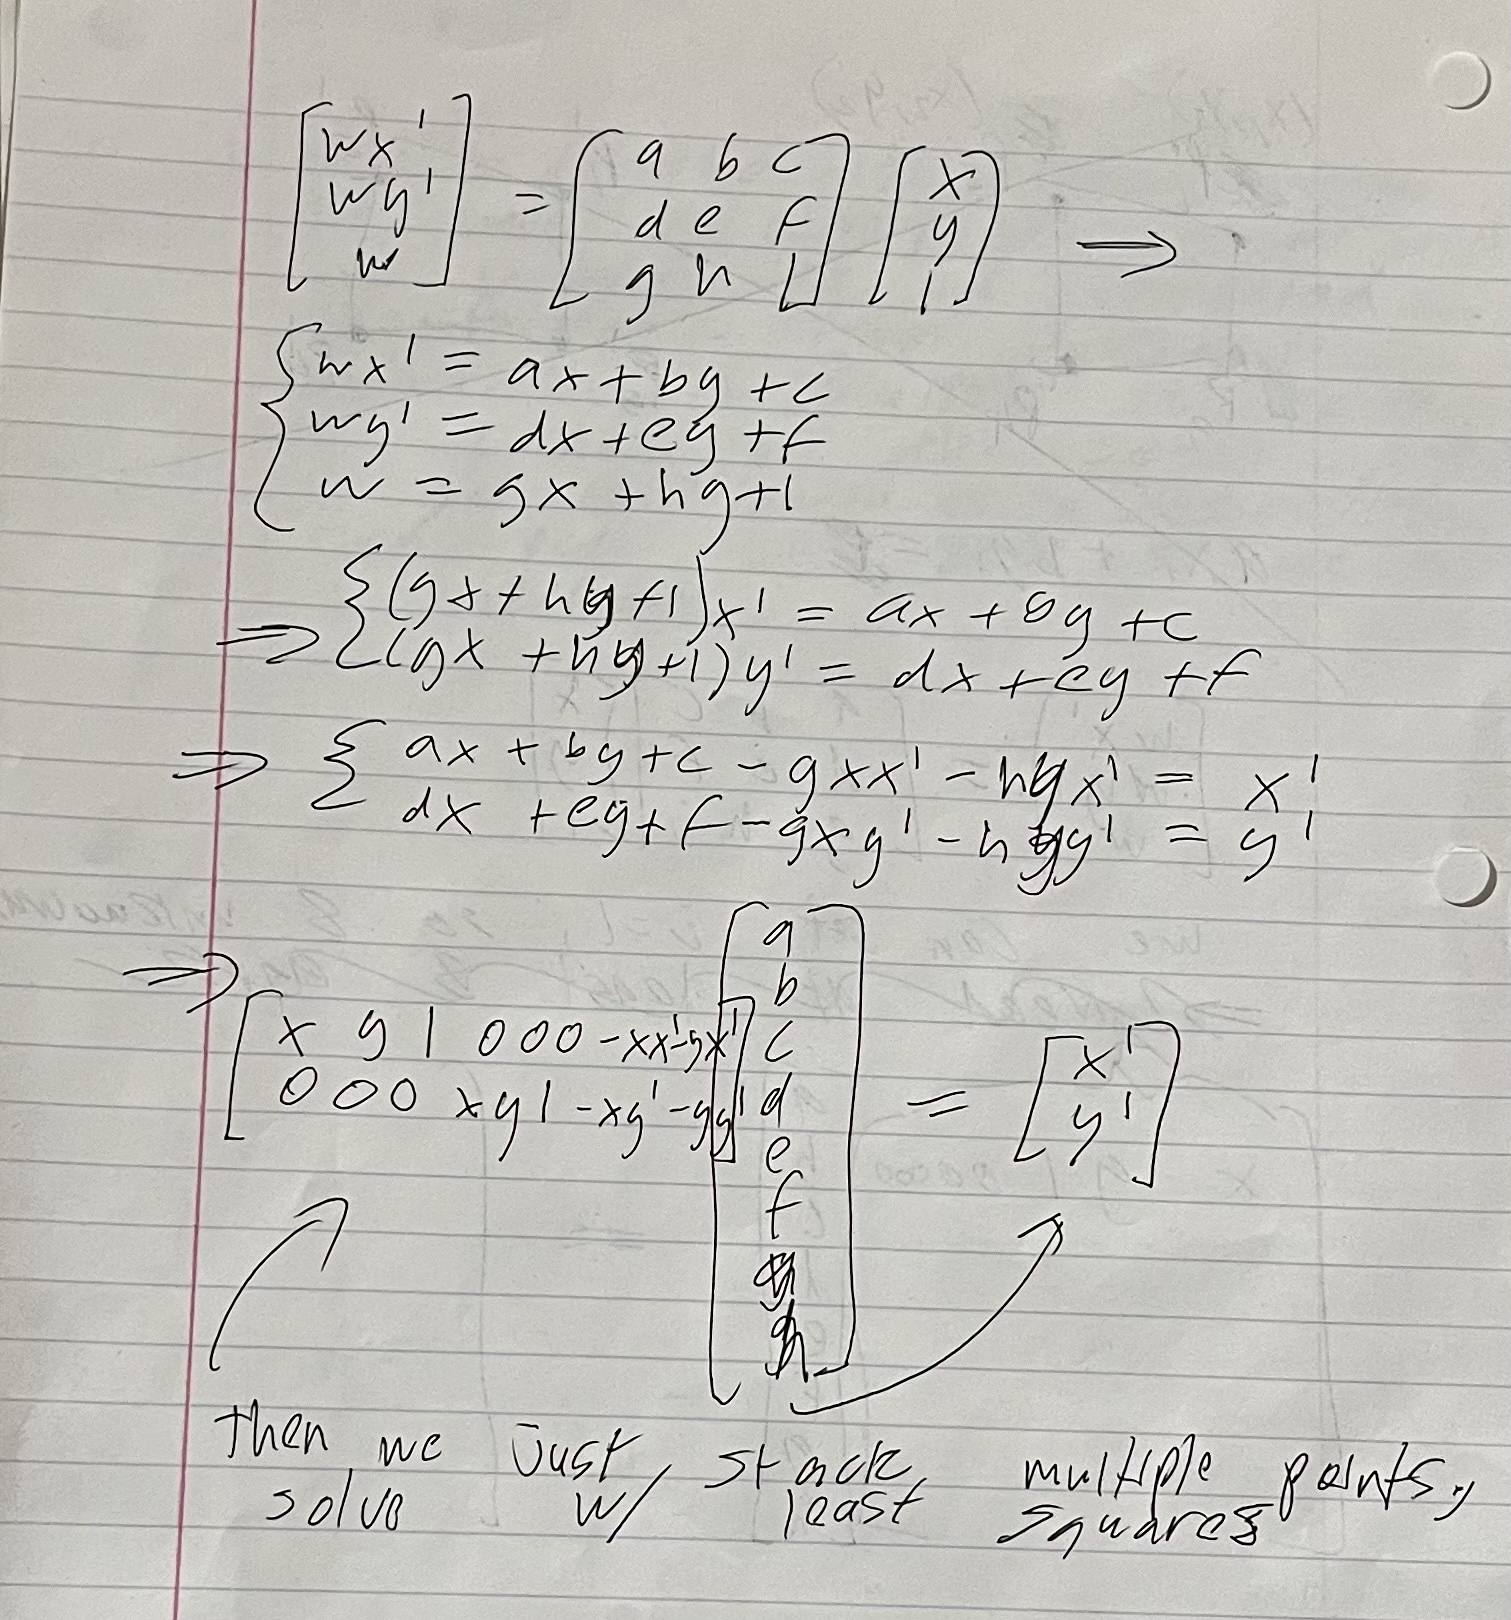 [wx'
wy'
w] = [a b c
d e f
g h 1] [x
y
1] →
{wx' = ax + by + c
wy' = dx + ey + f
w = gx + hy + 1
⇒ {(gx + hy + 1)x' = ax + by + c
(gx + hy + 1)y' = dx + ey + f
⇒ {ax + by + c - gxx' - hyx' = x'
dx + ey + f - gxy' - hyy' = y'
⇒
[x y 1 0 0 0 -xx' -yx'
0 0 0 x y 1 -xy' -yy']
[a
b
c
d
e
f
g
h]
= [x'
y']
then we Just stack multiple points,
solve w/ least squares